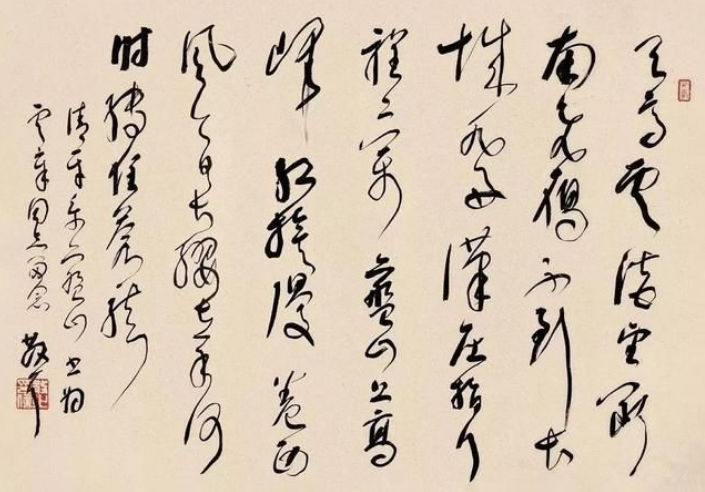 天高雲淡望断
南飞鴈不到长
城非好漢屈指行
程二万六盤山上高
峰红旗漫卷西
风今日长缨在手何
时缚住苍龙
清平乐六盘山 书为
同志留念 散耳